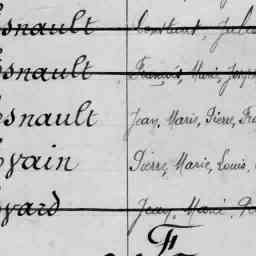 esnault Constant, Jules
esnault François, Marie, Joseph
esnault Jean, Marie, Pierre, Fra
vain Pierre, Marie, Louis,
yard Jean, Marie, Pi
F